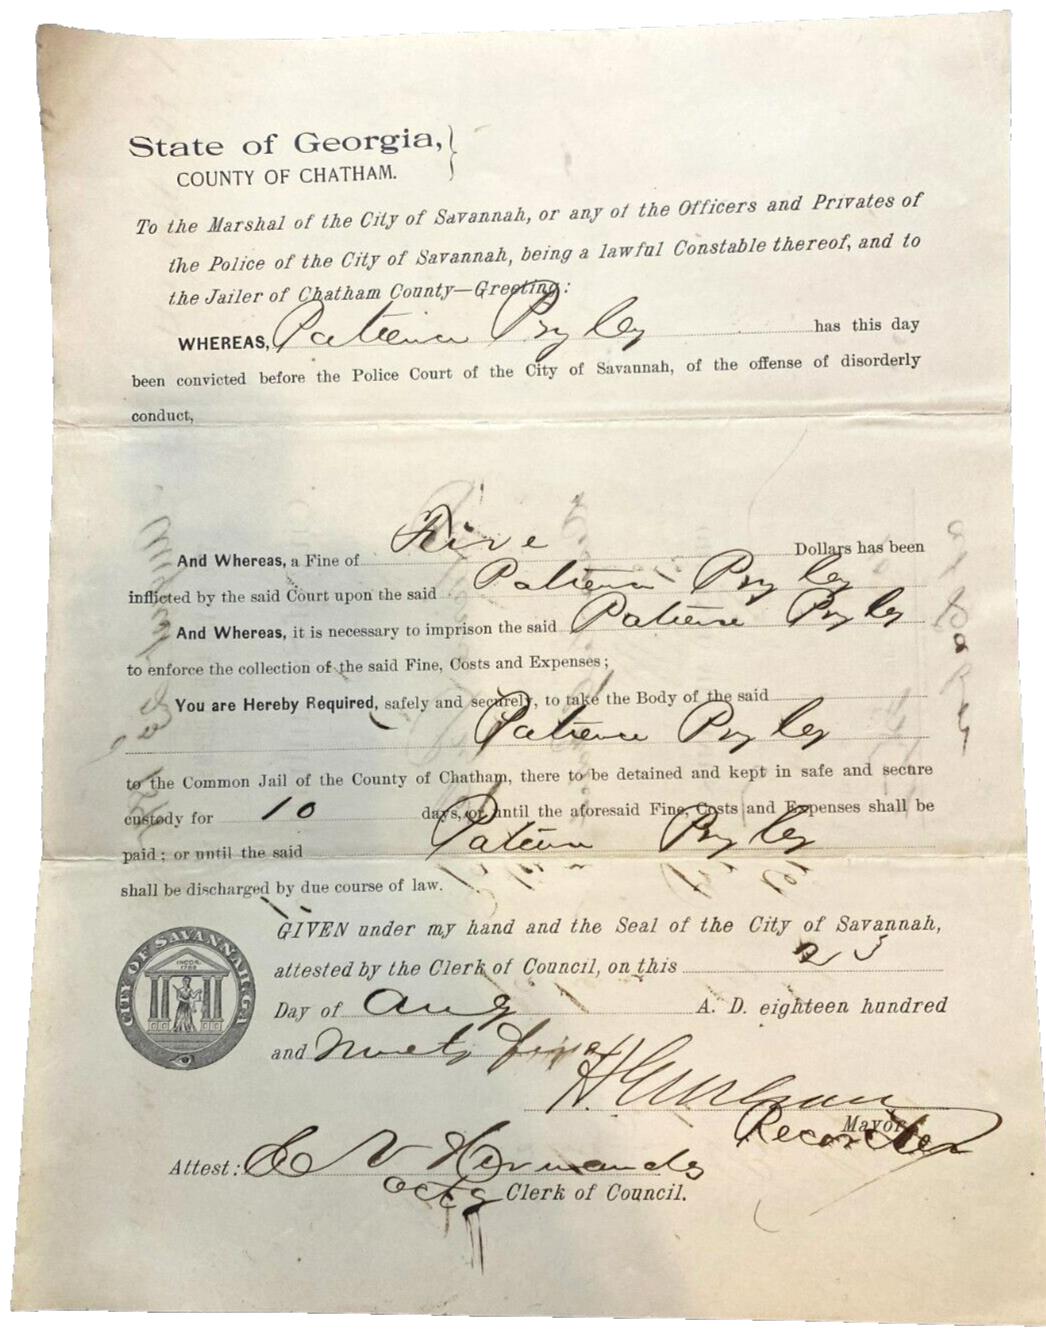 State of Georgia,
COUNTY OF CHATHAM.
To the Marshal of the City of Savannah, or any of the Officers and Privates of
the Police of the City of Savannah, being a lawful Constable thereof, and to
the Jailer of Chatham County—Greeting:
WHEREAS, Patience has this day
been convicted before the Police Court of the City of Savannah, of the offense of disorderly
conduct,
And Whereas, a Fine of Five Dollars has been
inflicted by the said Court upon the said Patience
And Whereas, it is necessary to imprison the said Patience
to enforce the collection of the said Fine, Costs and Expenses;
You are Hereby Required, safely and securely, to take the Body of the said
Patience
to the Common Jail of the County of Chatham, there to be detained and kept in safe and secure
custody for 10 days, or until the aforesaid Fine, Costs and Expenses shall be
paid; or until the said Patience
shall be discharged by due course of law.
CITY OF SAVANNAH, GA
INCOR. 1789
GIVEN under my hand and the Seal of the City of Savannah,
attested by the Clerk of Council, on this 23
Day of Aug A. D. eighteen hundred
and Ninety five
Mayor
Recorder
Attest:
actg Clerk of Council.